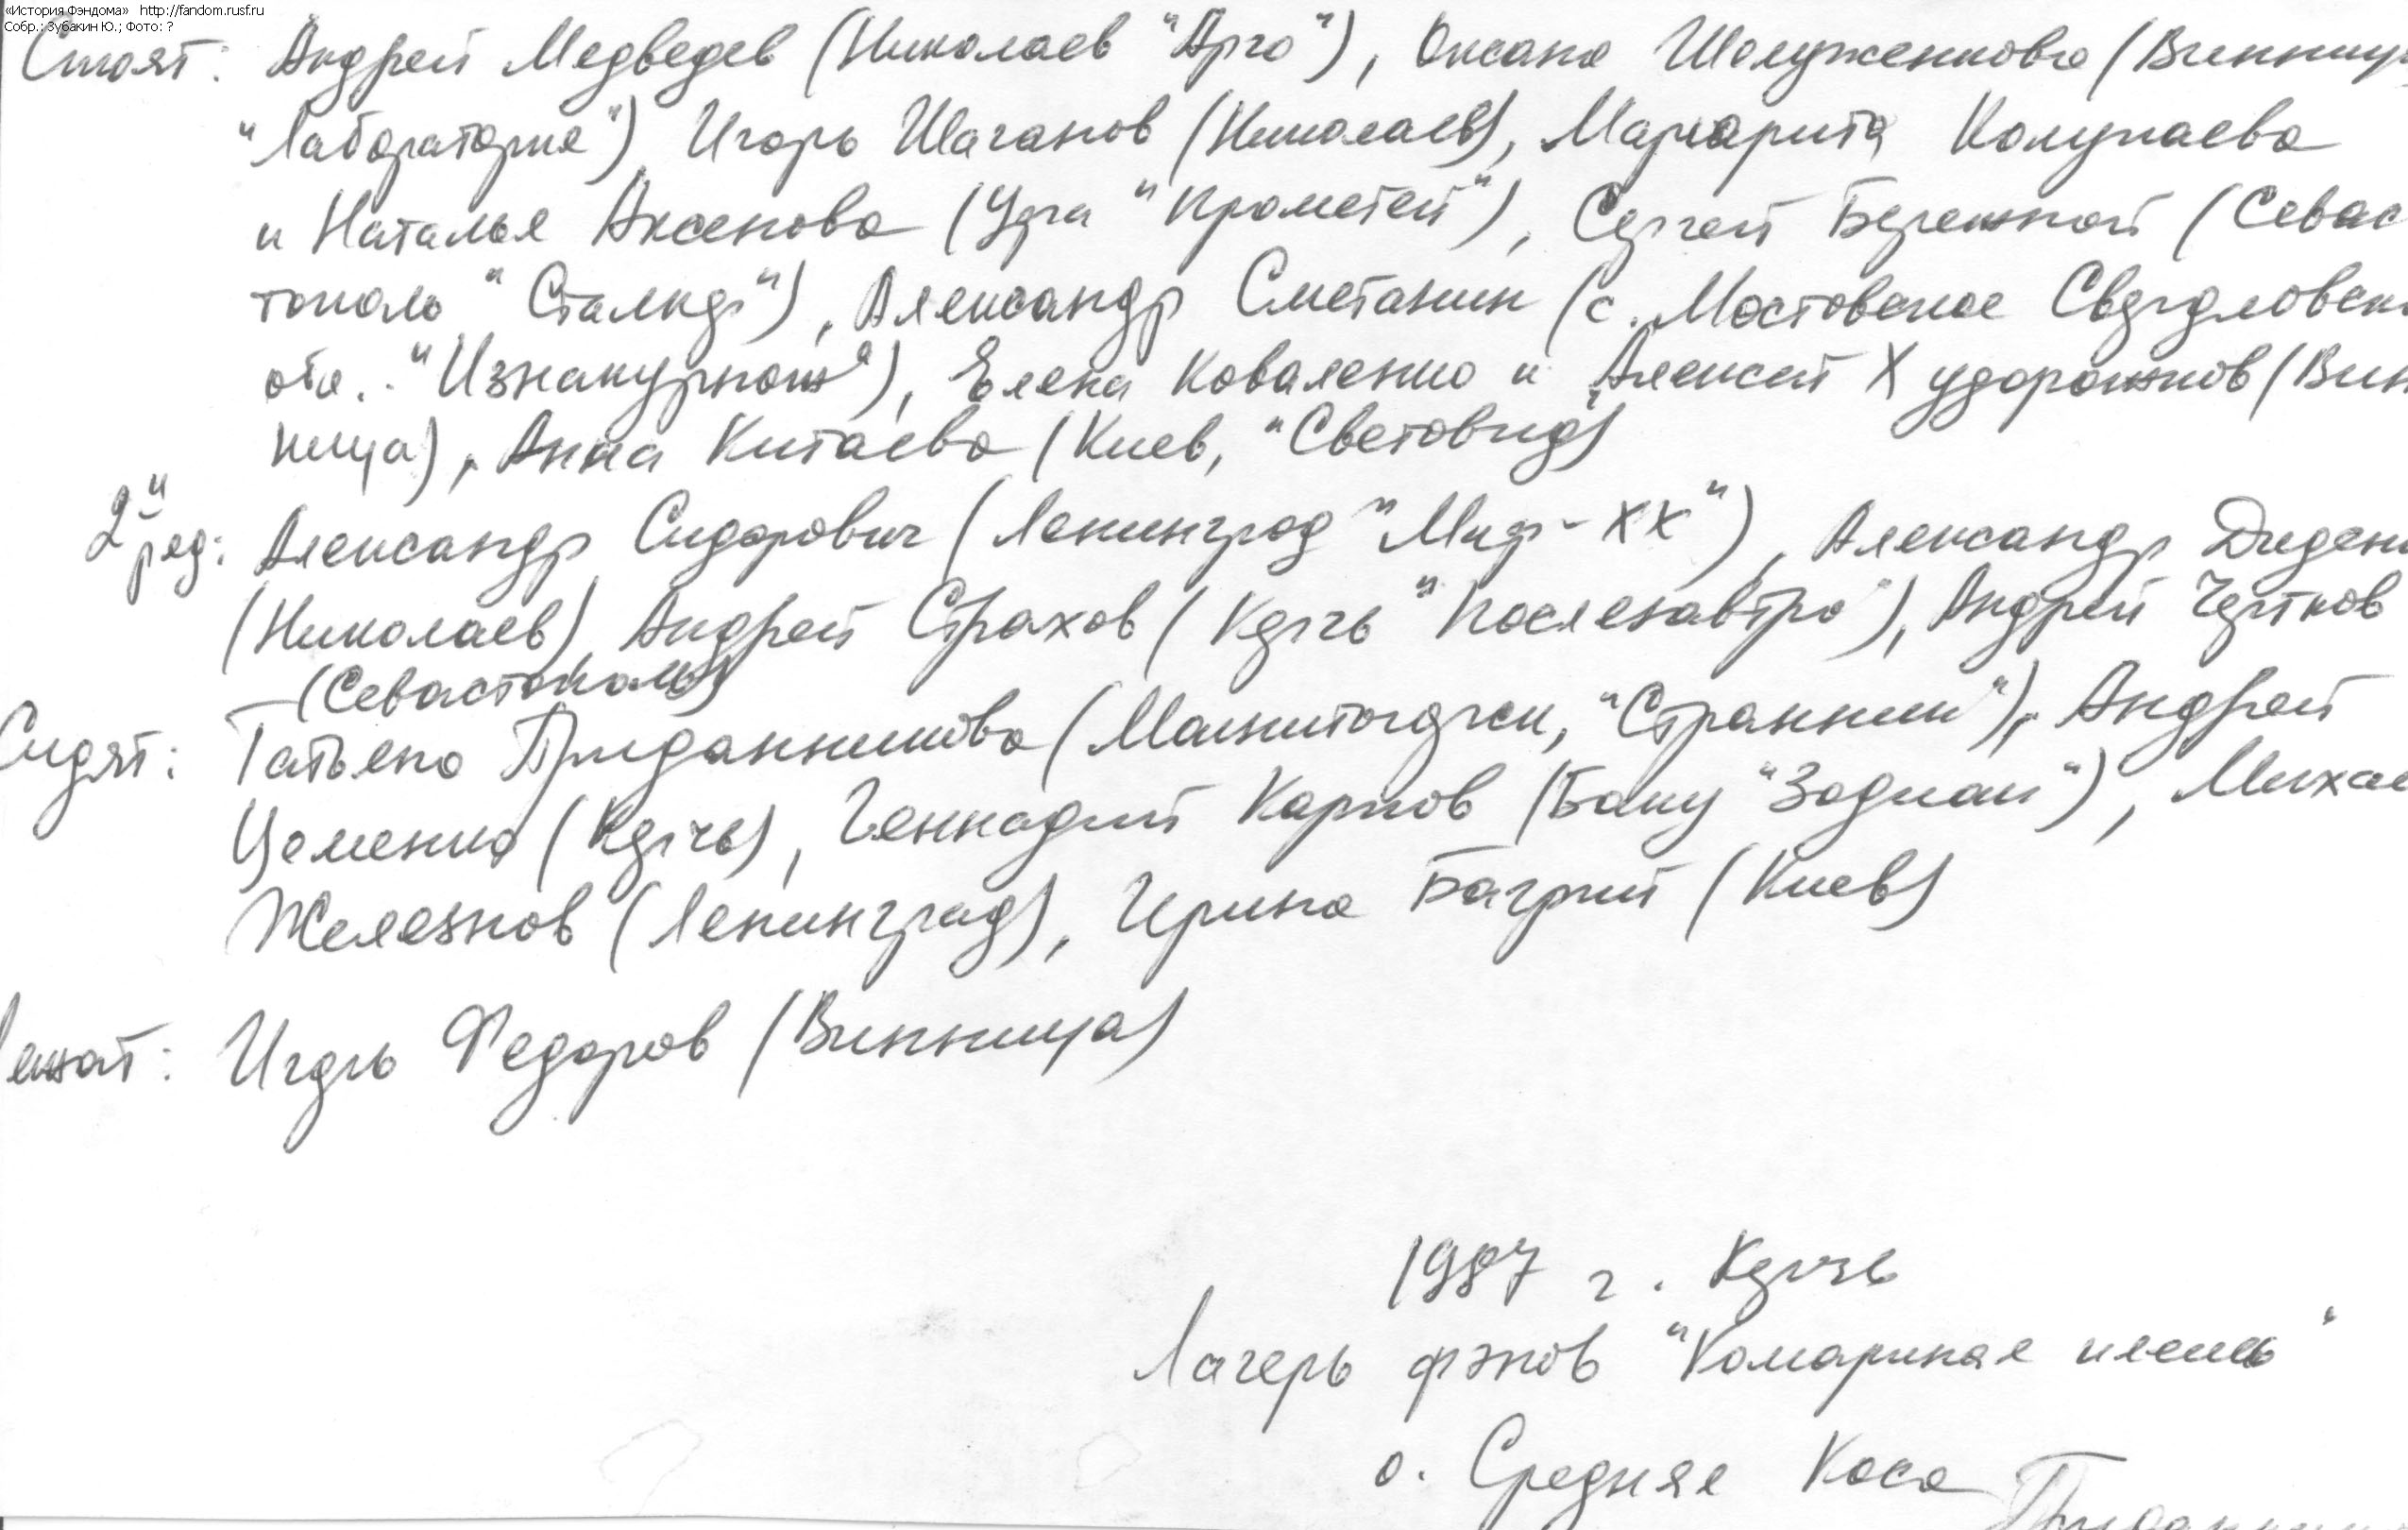 «История Фэндома» http://fandom.rusf.ru
Собр.: Зубакин Ю.; Фото: ?
Стоят: Андрей Медведев (Николаев "Арго"), Оксана Шелуженкова (Винниц
"Лаборатория"), Игорь Шаганов (Николаев), Маргарита Колупаева
и Наталья Аксенова (Уфа "Прометей"), Сергей Бережной (Севас
тополь "Сталкер"), Александр Сметанин (с. Мостовское Свердловск
обл. "Изнакурнож"), Елена Коваленко и Алексей Худорожков (Вин
ница), Анна Китаева (Киев, "Световид")
2й ряд: Александр Сидорович (Ленинград "Мир-XX"), Александр Диден
(Николаев), Андрей Страхов (Керчь "Послезавтра"), Андрей Чертков
(Севастополь)
Сидят: Татьяна Приданникова (Магнитогорск, "Странник"), Андрей
Цеменко (Керчь), Геннадий Карпов (Баку "Зодиак"), Михаи
Железнов (Ленинград), Ирина Багрий (Киев)
лежат: Игорь Федоров (Винница)
1987 г. Керчь
Лагерь фэнов "Комариная плешь"
о. Средняя Коса